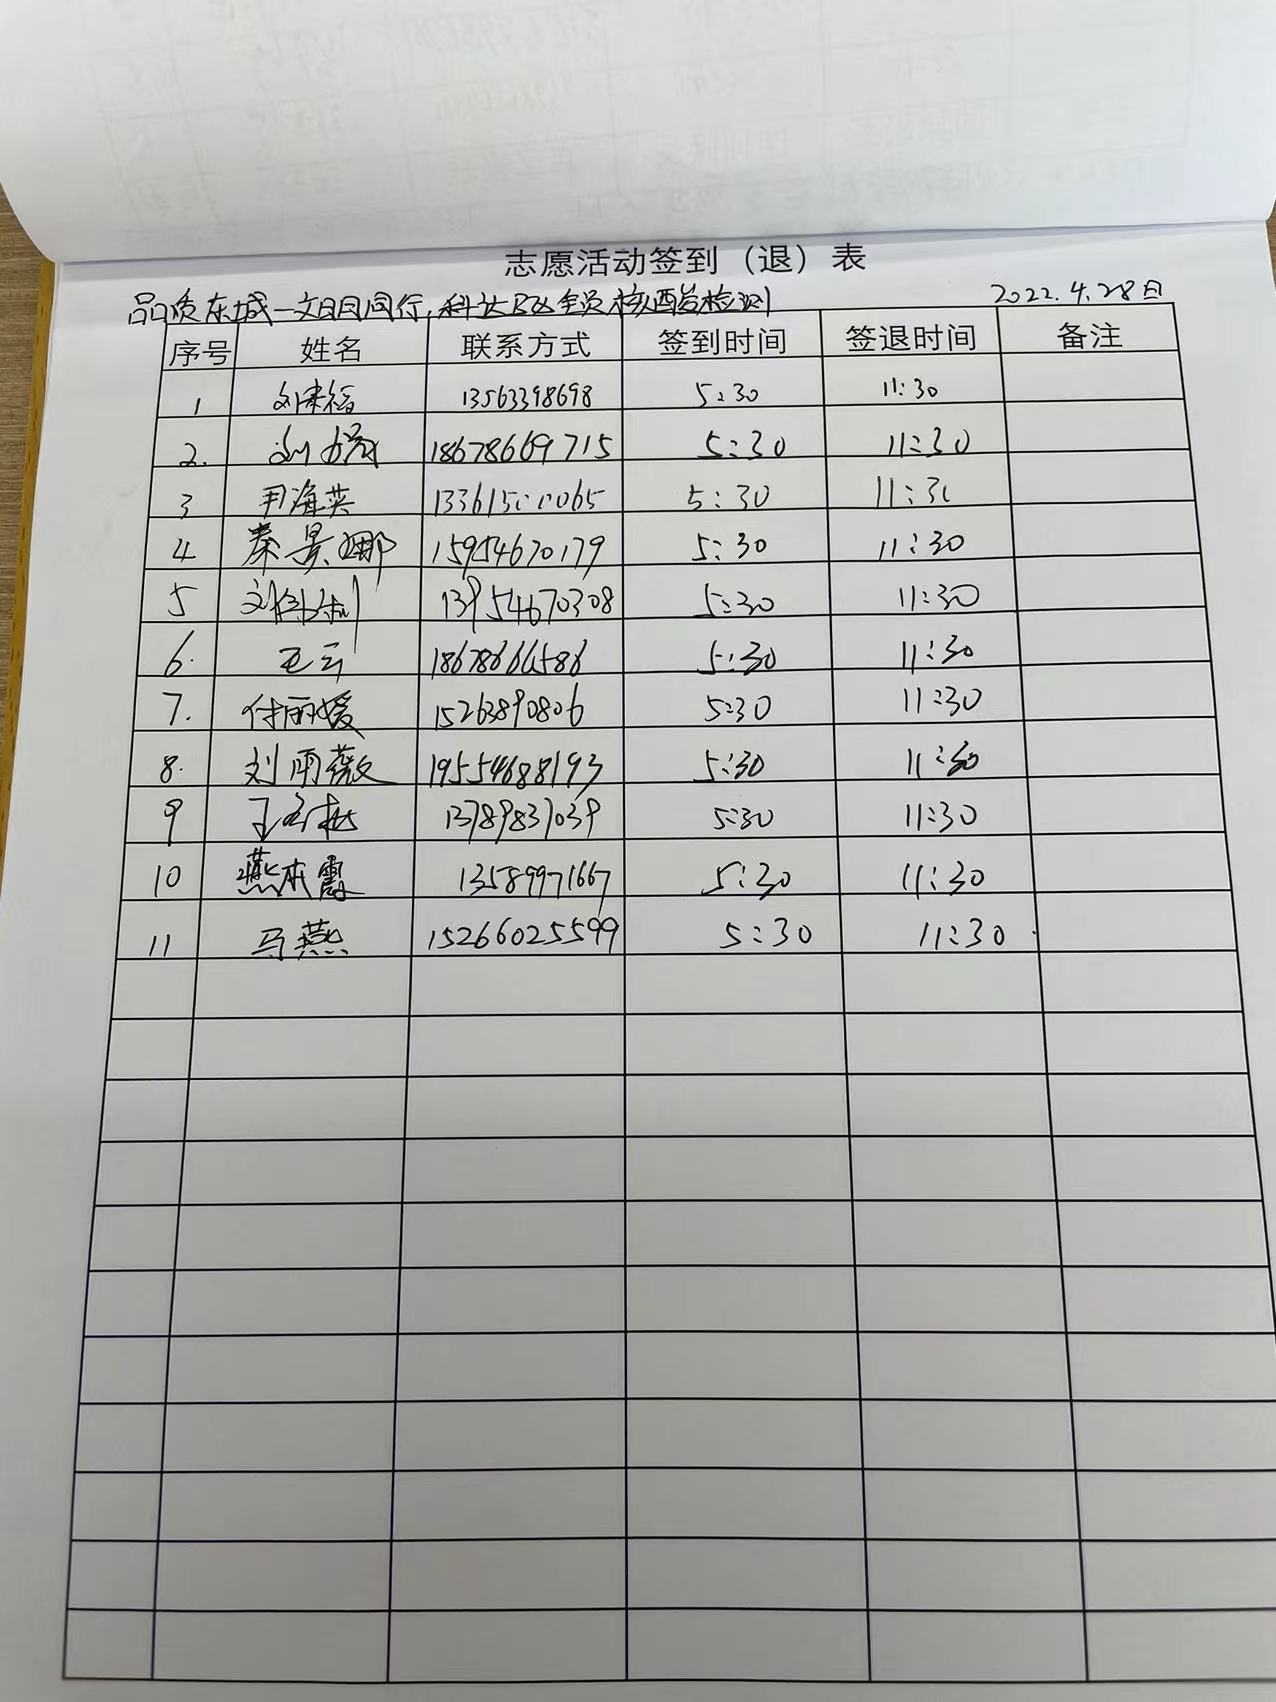 志愿活动签到（退）表
品质东城一文明同行,科达社区全员核酸检测 2022.4.28日
序号 姓名 联系方式 签到时间 签退时间 备注
1 13563398698 5:30 11:30
2. 18678669715 5:30 11:30
3 尹海英 13361500065 5:30 11:30
4 秦景娜 15954670179 5:30 11:30
5 13954670308 5:30 11:30
6. 王云 5:30 11:30
7. 付丽媛 15263890806 5:30 11:30
8. 刘雨薇 19554688193 5:30 11:30
9 13789837039 5:30 11:30
10 燕本霞 13589971667 5:30 11:30
11 马燕 15266025599 5:30 11:30